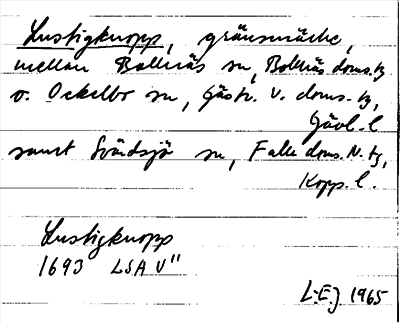 Lustigknopp, gränsmärke,
mellan Bollnäs sn, Bollnäs doms. tg
o. Ockelbo sn, Gästr. V. doms. tg,
Gävl. l
samt Svärdsjö sn, Falu doms. N. tg,
Kopp. l.
Lustigknopp
1693 LSA V"
L-EJ 1965